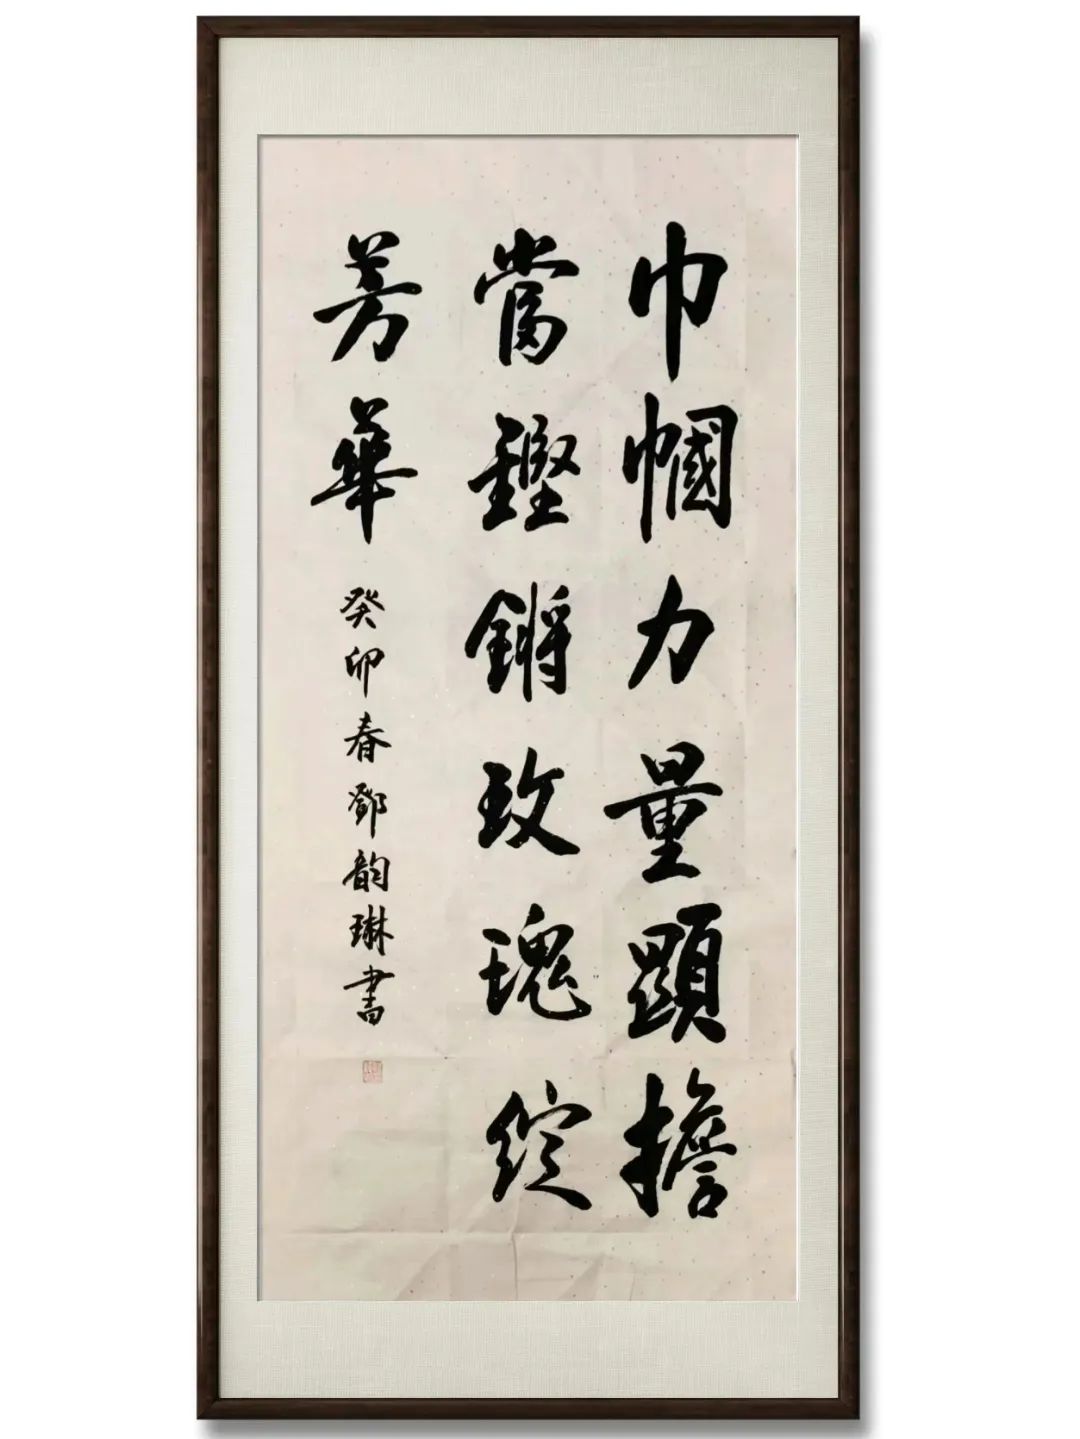 巾幗力量顯擔
當鏗鏘玫瑰綻
芳華
癸卯春鄧韵琳書